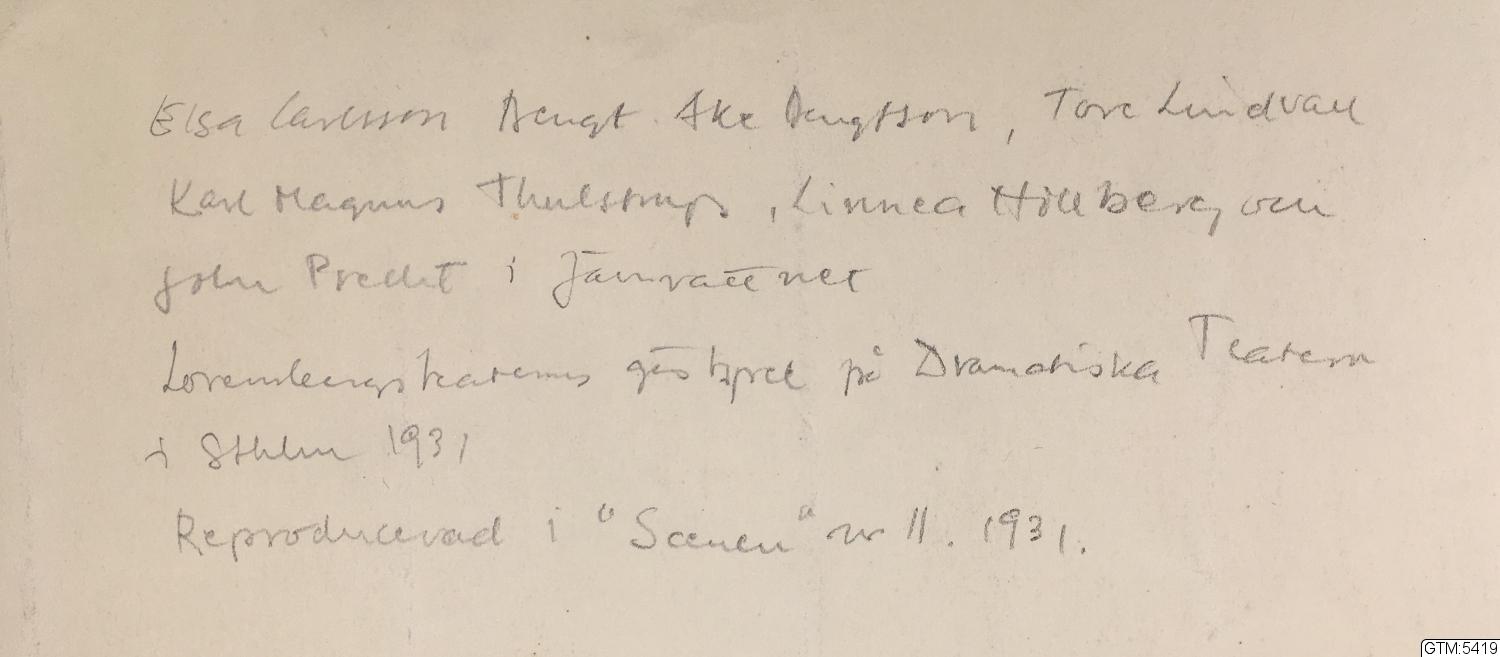 Elsa Carlsson Bengt Åke Bengtsson, Tore Lindwall
Karl Magnus Thulstrup, Linnea Hillberg och
John Precht i Jarnvattnet
Lorensbergsteaterns gästspel på Dramatiska Teatern
i Sthlm 1931
Reproducerad i "Scenen" nr 11. 1931.
GTM:5419